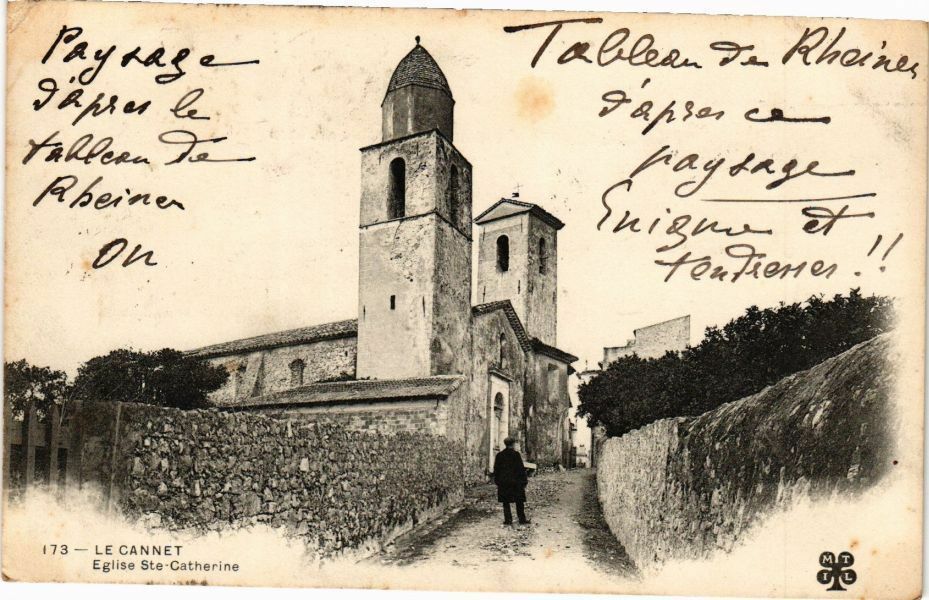 Paysage
d'apres le
tableau de
Rheiner
on
Tableau de Rheiner
d'après ce
paysage
Enigme et
tendresses!!
173 — LE CANNET
Eglise Ste-Catherine
M T
I L